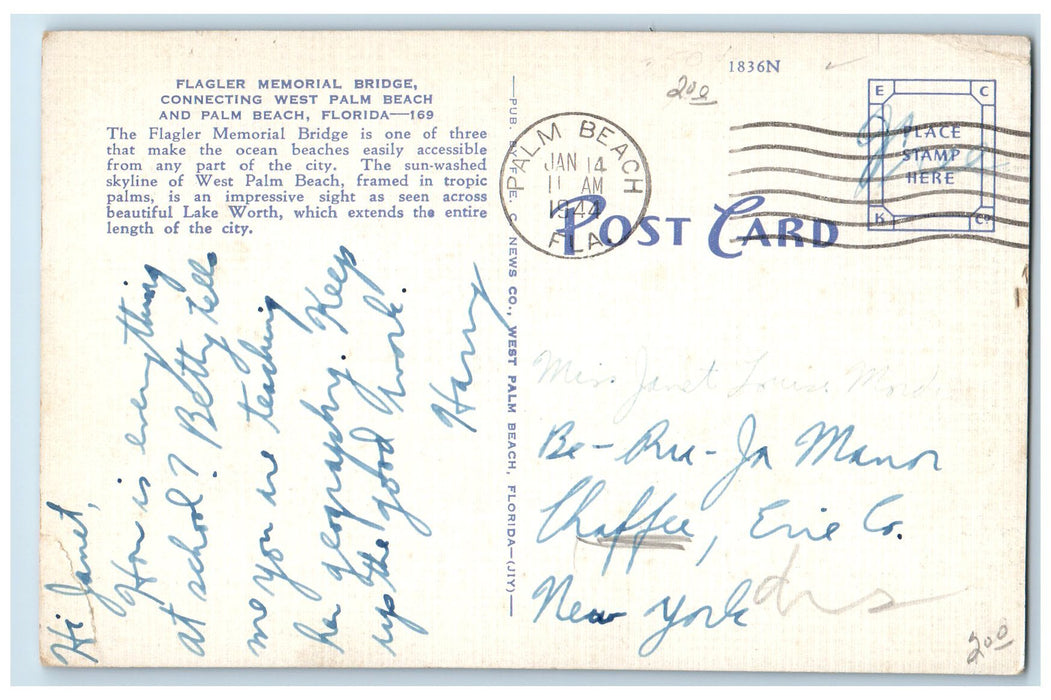 FLAGLER MEMORIAL BRIDGE,
CONNECTING WEST PALM BEACH
AND PALM BEACH, FLORIDA—169
The Flagler Memorial Bridge is one of three
that make the ocean beaches easily accessible
from any part of the city. The sun-washed
skyline of West Palm Beach, framed in tropic
palms, is an impressive sight as seen across
beautiful Lake Worth, which extends the entire
length of the city.
Hi Janet,
How is everything
at school? Betty tells
me you are teaching
her geography. Keep
up the good work.
Harry
NEWS CO., WEST PALM BEACH, FLORIDA—(JIY)—
1836N
200
PALM BEACH
JAN 14
11 AM
1944
FLA.
POST CARD
E C
PLACE
STAMP
HERE
K Co
Free
Miss Janet Louise
Be-Ru-Ja Manor
Chaffee, Erie Co.
New York
drs
200